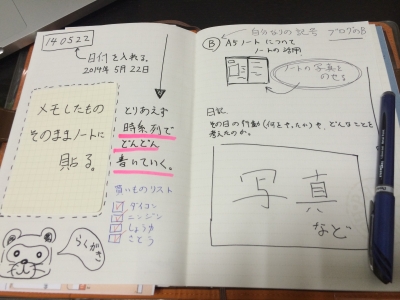 140522
日付を入れる。
2014年5月22日
メモしたもの
そのままノートに
貼る。
とりあえず
時系列で
どんどん
書いていく。
買いものリスト
ダイコン
ニンジン
しょうゆ
さとう
らくがき
自分なりの記号 ブログのB
B A5ノートについて
ノートの活用
ノートの写真を
のせる
日記
その日の行動(何をやったか)や、どんなことを
考えたのか。
写真
など